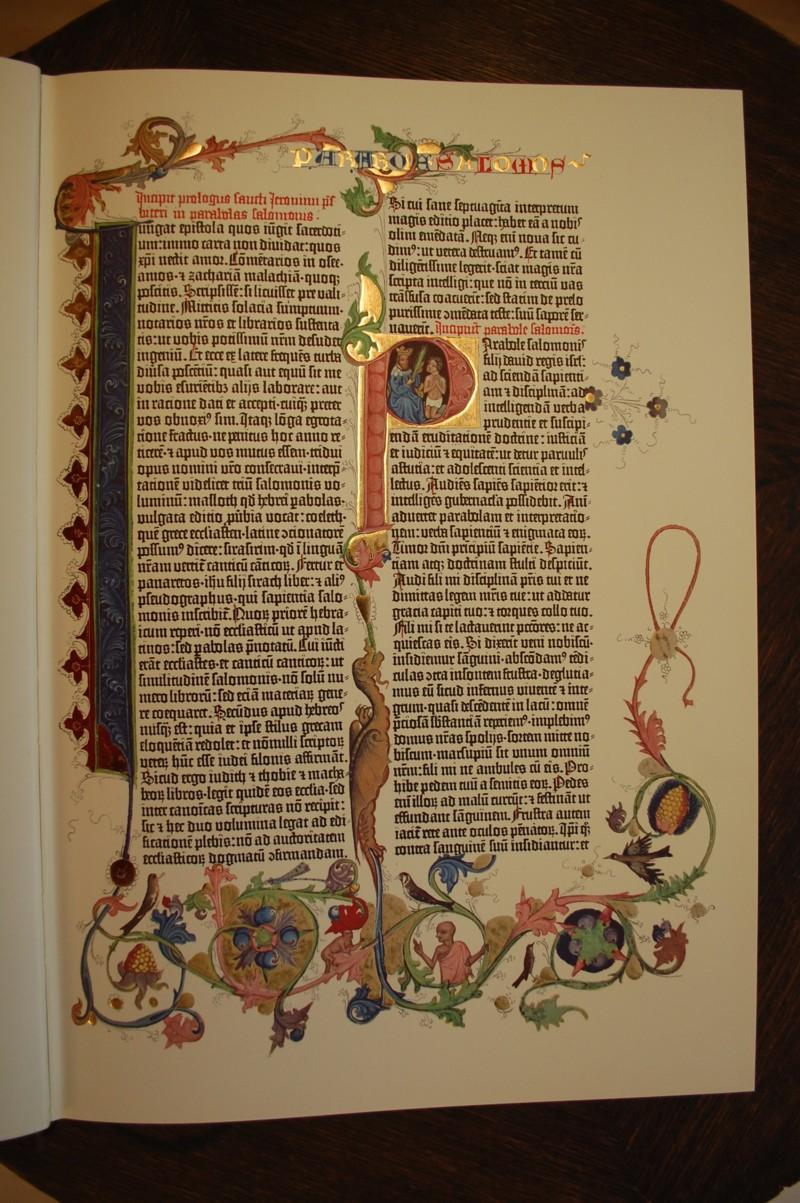 PARABOLE SALOMONIS
Incipit prologus sancti Jeronimi p̄s
biteri in parabolas salomonis.
Iungat epistola quos iũgit sacerdoti-
um: immo carta non diuidat: quos
xp̄i nectit amor. Cõmẽtarios in osee-
amos. ⁊ zachariã malachiã· quoq;
poscitis. Scripsissẽ: si licuisset pre vali-
tudine. Mittitis solacia sumptuum·
notarios nr̃os et librarios sustenta-
tis: ut vobis potissimũ nr̃m desudet
ingeniũ. Et ecce ex latere freq̃ues turba
diũsa poscẽtiũ: quasi aut equũ sit me
vobis esuriẽtib⁹ alijs laborare: aut
in ratione dati et accepti· cuiq̃; preter
vos obnoxi⁹ sim. Itaq; lõga egrota-
tione fractus· ne penitus hoc anno re-
ticerẽ· ⁊ apud vos mutus essem· tridui
opus nomini vr̃o consecraui· interp̃-
tationẽ videlicet triũ salomonis vo-
luminũ: masloth qd̃ hebrei pabolas·
vulgata editio p̃ubia vocat: coeleth·
quẽ grece ecclesiasten· latine ɔcionatorẽ
possum⁹ dicere: sirasirim· qd̃ ĩ linguã
nr̃am vertit̃ canticũ cãticoꝝ. Fertur et
panaretos· ihũ filij sirach liber: ⁊ ali⁹
pseudographus· qui sapientia salo-
monis inscribit̃. Quoꝝ priorẽ hebra-
icum reperi· nõ ecclesiasticũ ut apud la-
tinos: sed pabolas p̃notatũ. Cui iũcti
erãt ecclesiastes· et canticũ canticoꝝ: ut
similitudinẽ salomonis· nõ solũ nu-
mero libroruũ: sed etiã materiaꝝ gene-
re coequaret. Secũdus apud hebreos
nusq̃ est: quia et ipse stilus grecam
eloquẽtiã redolet: et nõnulli scriptoꝝ
veteꝝ hũc esse iudei filonis affirmãt.
Sicud ergo iudith ⁊ thobie ⁊ macha-
beoꝝ libros· legit quidẽ eos ecclia· sed
inter canoĩcas scripturas nõ recipit:
sic ⁊ hec duo volumina legat ad edi-
ficationẽ plebis: nõ ad auctoritatem
ecclesiasticoꝝ dogmatũ ɔfirmandam.
Si cui sane septuagĩta interpretum
magis editio placet: habet eã a nobis
olim emẽdatã. Neq; enĩ noua sic cu-
dim⁹: ut vetera destruam⁹. Et tamẽ cũ
diligẽtissime legerit· sciat magis nr̃a
scripta intelligi: que nõ in terciũ vas
trãsfusa coacuerĩt: sed statim de prelo
purissime ɔmẽdata teste: suũ saporẽ ser-
uauerĩt. Incipiunt parabole salomonis.
Parabole salomonis
filij dauid regis isrl̃:
ad sciendã sapienti-
am ⁊ disciplinã: ad
intelligendã verba
prudentie et suscipi-
endã eruditationẽ doctrine: iusticiã
et iudiciũ ⁊ equitatẽ: ut detur paruulis
astutia: et adolescenti scientia et intel-
lectus. Audiẽs sapiẽs sapiẽtior erit: ⁊
intelligẽs gubernacl̃a possidebit. Ani-
aduertet parabolam et interpretatio-
nem: verba sapientiũ ⁊ enigmata eoꝝ.
Timor dñi principiũ sapiẽtie. Sapien-
tiam atq; doctrinam stulti despiciũt.
Audi fili mi disciplinã p̃ris tui et ne
dimittas legem mr̃is tue: ut addatur
gracia capiti tuo: ⁊ torques collo tuo.
Fili mi si te lactauerint pctores: ne ac-
quiescas eis. Si dixerĩt veni nobiscũ·
insidiemur sãguini· abscõdam⁹ tẽdi-
culas ɔtra insontem frustra· deglutia-
mus eũ sicud infernus viuentẽ ⁊ inte-
grum· quasi descẽdentẽ in lacũ: omnẽ
p̃ciosã sb̃stantiã reperiem⁹· implebim⁹
domus nr̃as spolijs· sortem mitte no-
biscum· marsupiũ sit unum omniũ
nr̃m: fili mi ne ambules cũ eis. Pro-
hibe pedem tuũ a semitis eoꝝ. Pedes
enĩ illoꝝ ad malũ currũt: ⁊ festinãt ut
effundant sãguinem. Frustra autem
iacit̃ rete ante oculos pẽnatoꝝ. Ip̃i q̃;
contra sanguinẽ suũ insidiantur: et